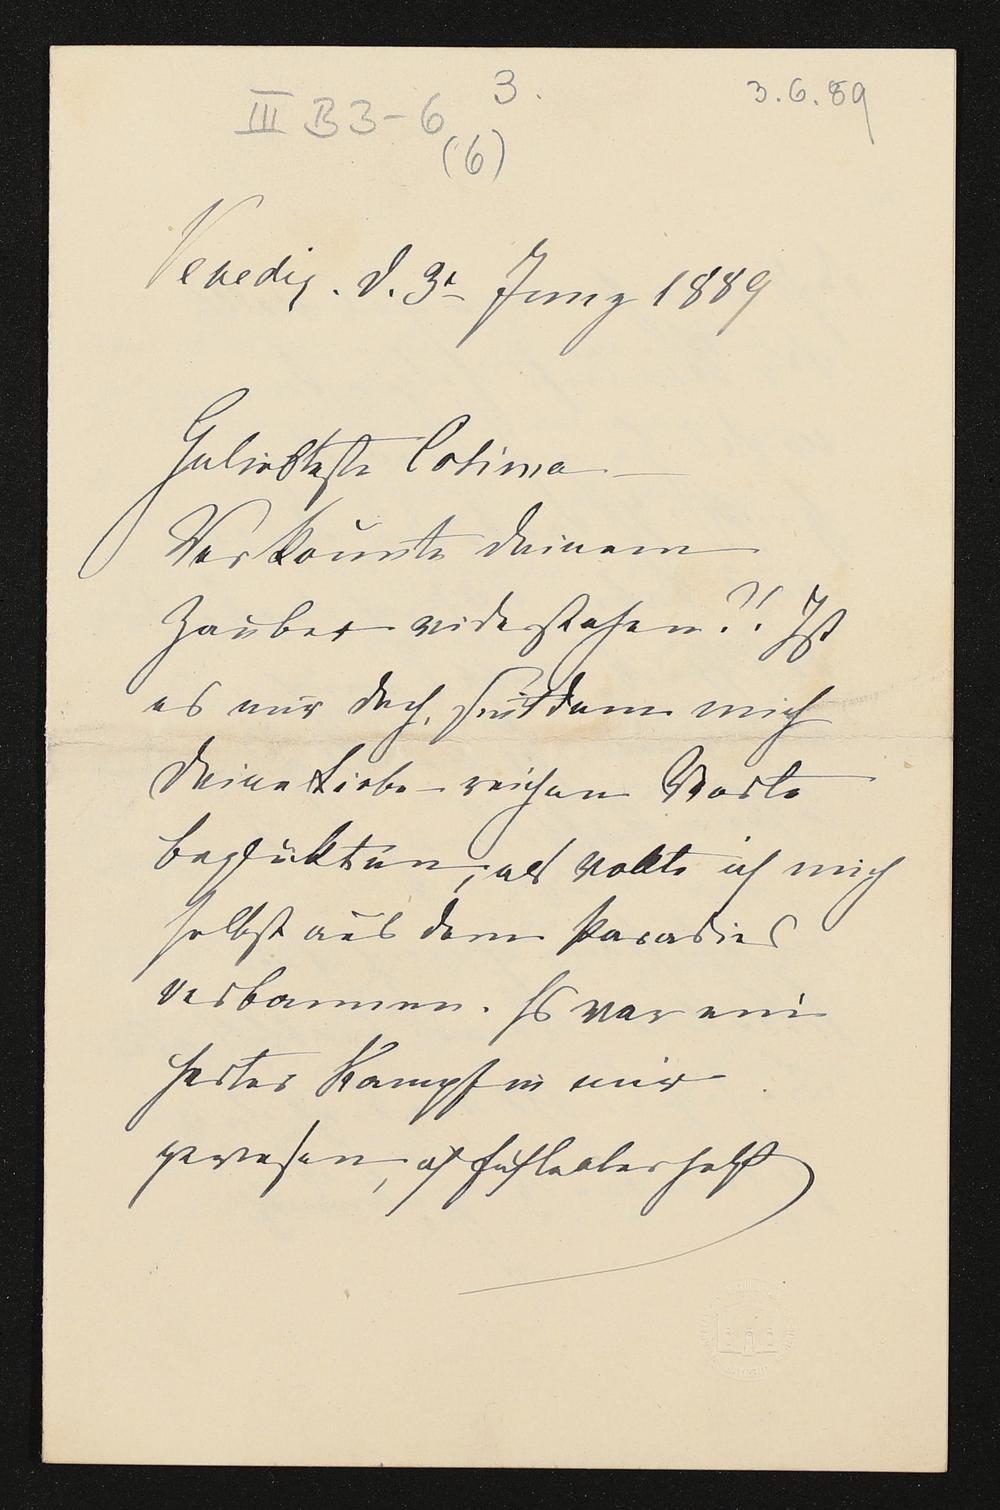 III B 3-6
3.
(6)
3.6.89
Venedig. d. 3t Juny 1889
Geliebteste Cosima —
Wer konnte deinem
Zauber widerstehen?! Ist
es mir doch, seitdem mich
deine Liebe-reichen Worte
beglükten, als wollte ich mich
selbst aus dem Paradies
verbannen. Es war ein
harter Kampf in mir
gewesen, ich fühle aber selbst